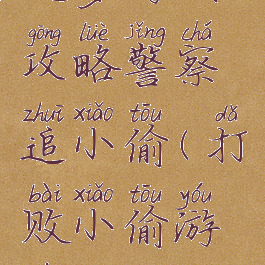 gōng lüè jǐng chá
攻略警察
zhuī xiǎo tōu dǎ
追小偷(打
bài xiǎo tōu yóu
败小偷游